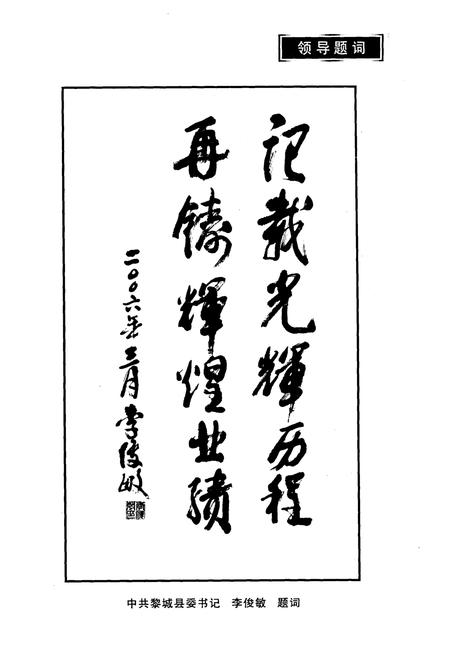 领导题词
记载光輝历程
再铸輝煌业绩
二〇〇六年三月 李俊敏
中共黎城县委书记 李俊敏 题词